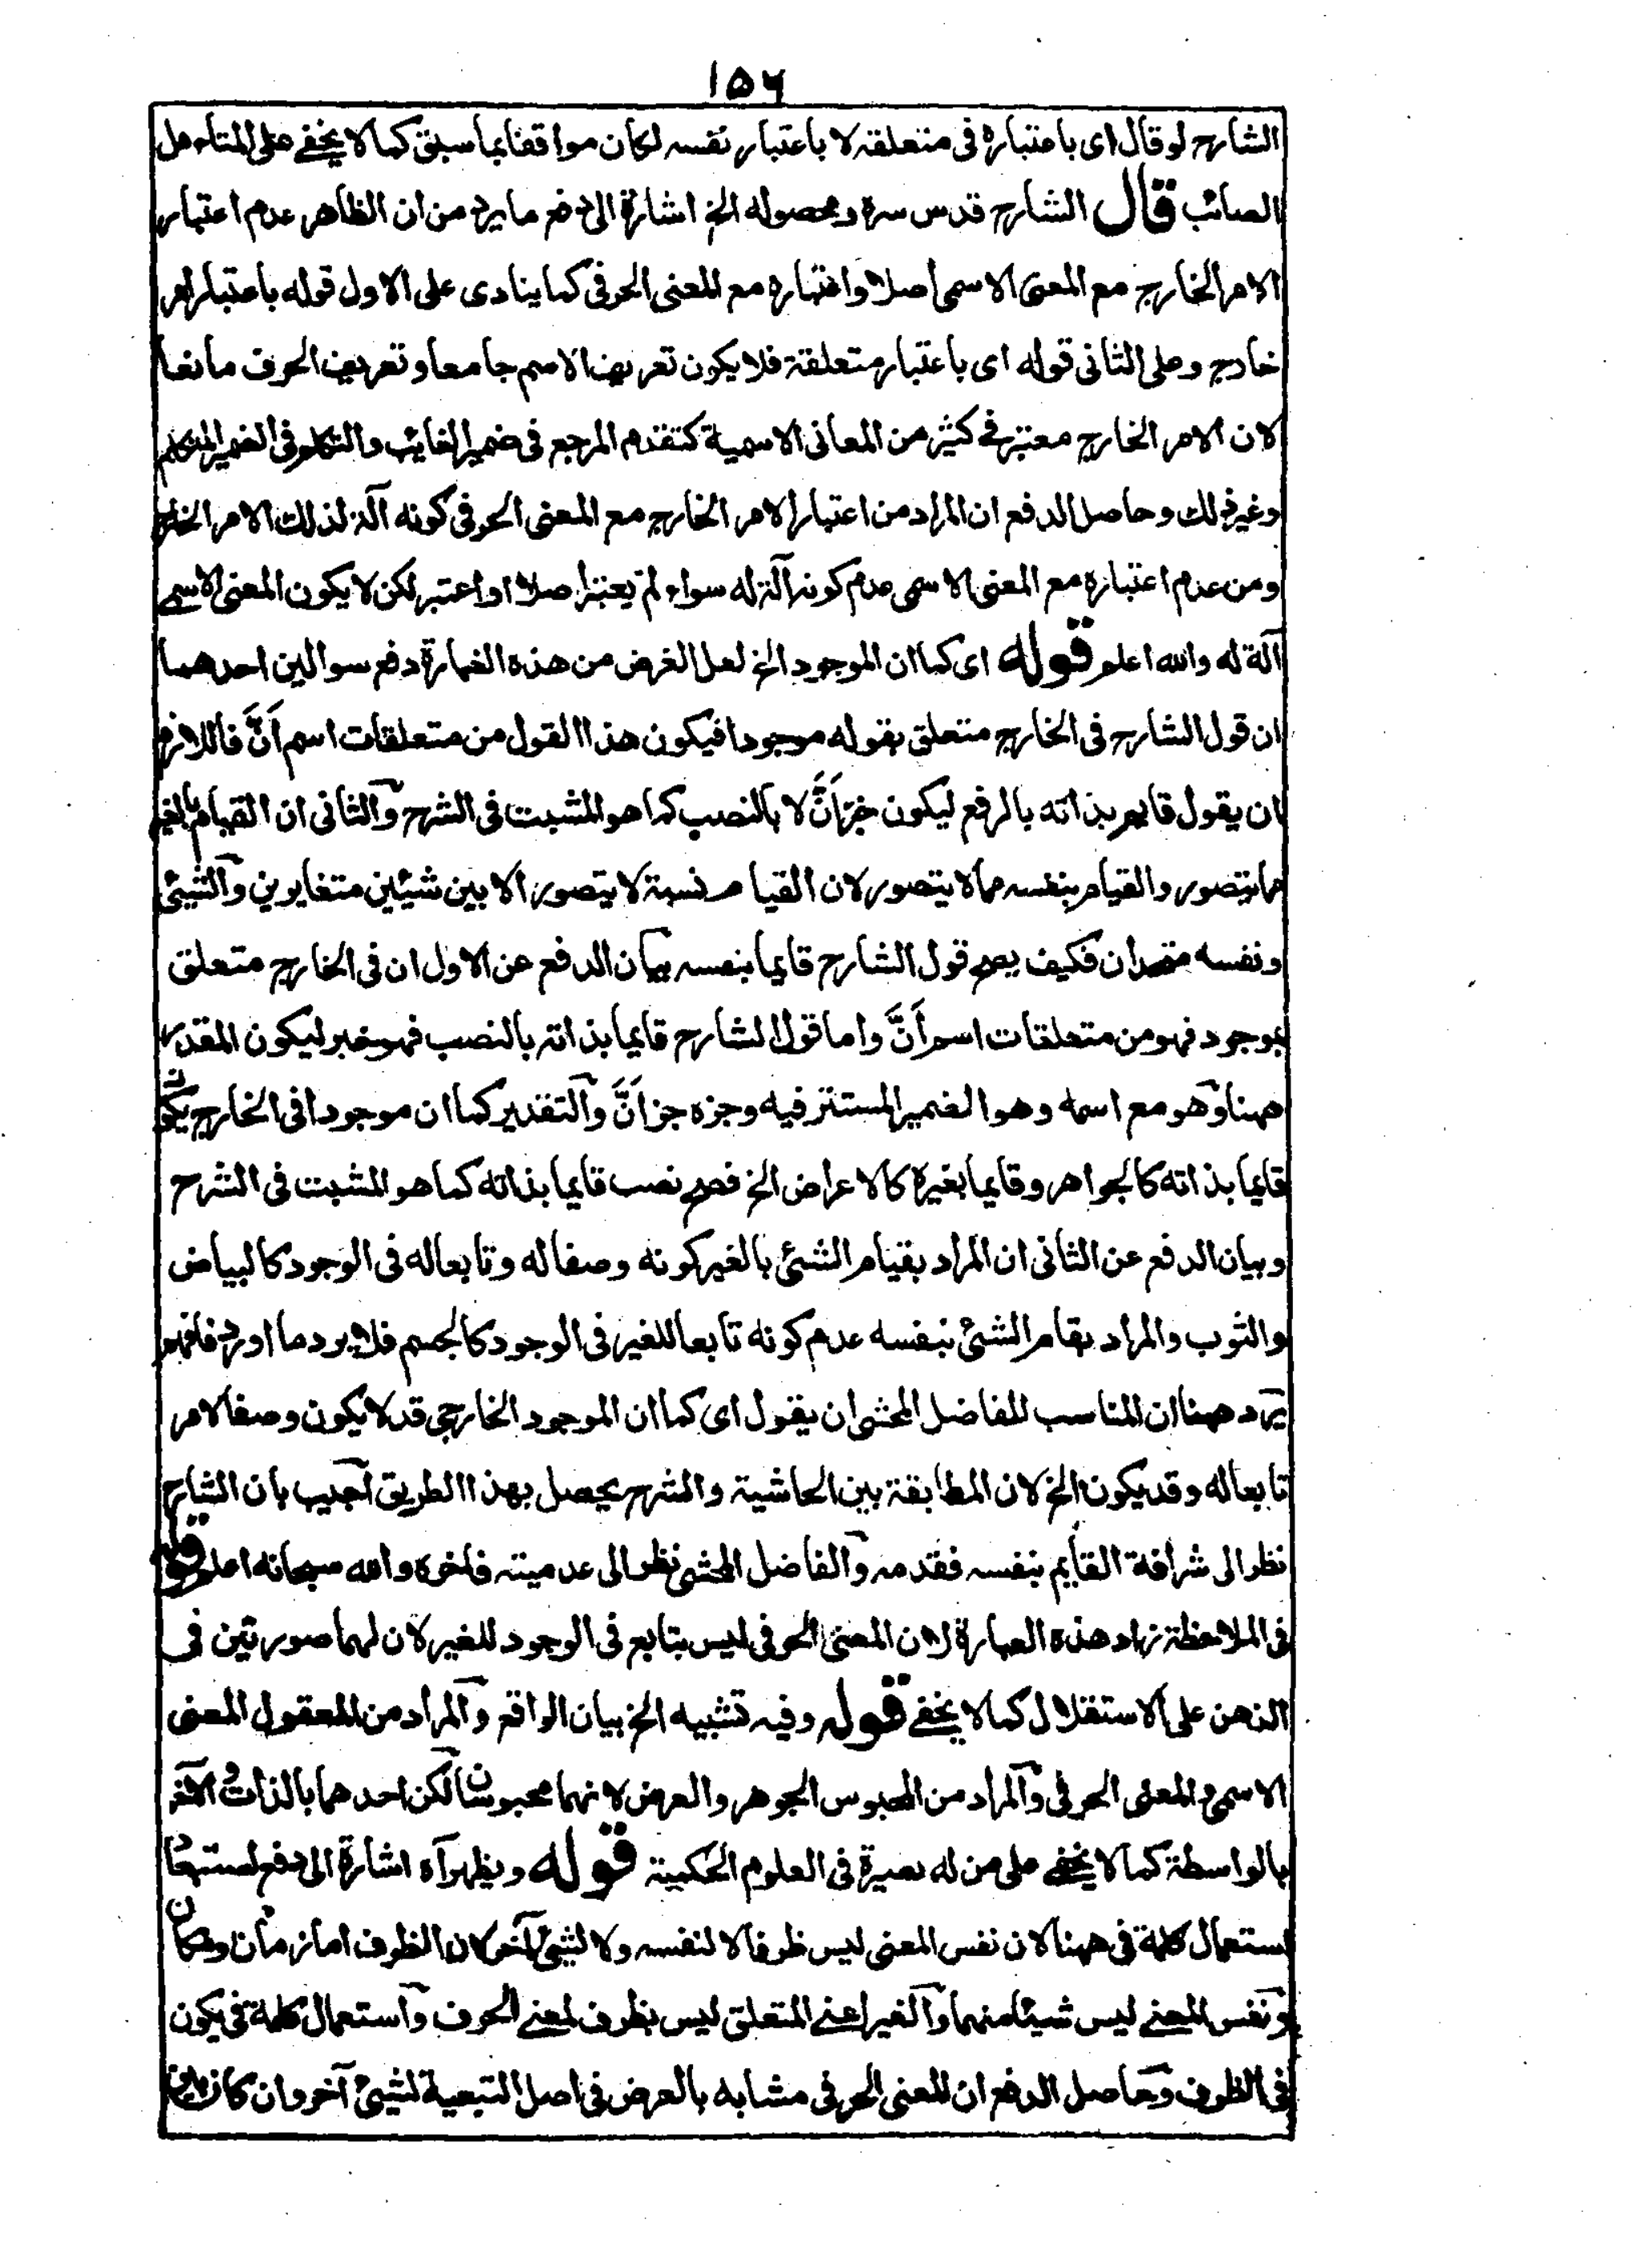 ١٥٦
الشارح لو قال اى باعتباره فى متعلقه لا باعتبار نفسه لكان موافقا بما سبق كما لا يخفى على المتامل
الصائب قال الشارح قدس سره ومحصوله الخ اشارة الى دفع ما يرد من ان الظاهر عدم اعتبار
الامر الخارج مع المعنى الاسمى اصلا واعتباره مع المعنى الحرفى كما ينادى على الاول قوله باعتبار امر
خارج وعلى الثانى قوله اى باعتبار متعلقة فلا يكون تعريف الاسم جامعا وتعريف الحرف مانعا
لان الامر الخارج معتبر فى كثير من المعانى الاسمية كتقدم المرجع فى ضمير الغايب والتكلم فى الضمير المتكلم
وغير ذلك وحاصل الدفع ان المراد من اعتبار الامر الخارج مع المعنى الحرفى كونه آلة لذلك الامر الخارج
ومن عدم اعتباره مع المعنى الاسمى عدم كونه آلة له سواء لم يعتبر اصلا او اعتبر لكن لا يكون المعنى الاسمى
آلة له والله اعلم قوله اى كما ان الموجود الخ لعل الغرض من هذه العبارة دفع سوالين احدهما
ان قول الشارح فى الخارج متعلق بقوله موجودا فيكون هذا القول من متعلقات اسم اَنَّ فاللازم
ان يقول قايم بذاته بالرفع ليكون خبر اَنَّ لا بالنصب كما هو المثبت فى الشرح والثانى ان القيام بالغير
مما يتصور والقيام بنفسه مما لا يتصور لان القيام نسبة لا يتصور الا بين شيئين متغايرين والشيئ
ونفسه متحدان فكيف يصح قول الشارح قايما بنفسه بيان الدفع عن الاول ان فى الخارج متعلق
بموجود فهو من متعلقات اسم اَنَّ واما قول الشارح قايما بذاته بالنصب فهو خبر ليكون المقدر
ههنا وهو مع اسمه وهو الضمير المستتر فيه وخبره خبر اَنَّ والتقدير كما ان موجودا فى الخارج يكون
قايما بذاته كالجواهر وقايما بغيره كالاعراض الخ فصح نصب قايما بذاته كما هو المثبت فى الشرح
وبيان الدفع عن الثانى ان المراد بقيام الشئ بالغير كونه وصفا له وتابعا له فى الوجود كالبياض
والثوب والمراد بقام الشئ بنفسه عدم كونه تابعا للغير فى الوجود كالجسم فلا يرد ما اورد فافهم
يرد ههنا ان المناسب للفاضل المحشى ان يقول اى كما ان الموجود الخارجى قد لا يكون وصفا لامر
تابعا له وقد يكون الخ لان المطابقة بين الحاشية والشرح يحصل بهذا الطريق اجيب بان الشارح
نظر الى شرافة القايم بنفسه فقدمه والفاضل المحشى نظر الى عدميته فاخره والله سبحانه اعلم قوله
فى الملاحظة زاد هذه العبارة لان المعنى الحرفى ليس بتابع فى الوجود للغير لان لهما صورتين فى
الذهن على الاستقلال كما لا يخفى قوله وفيه تشبيه الخ بيان الواقع والمراد من المعقول المعنى
الاسمى والمعنى الحرفى والمراد من المحسوس الجوهر والعرض لانهما محسوسان لكن احدهما بالذات والآخر
بالواسطة كما لا يخفى على من له بصيرة فى العلوم الحكمية قوله ويظهر آه اشارة الى دفع استبعاد
استعمال كلمة فى ههنا لان نفس المعنى ليس ظرفا لا لنفسه ولا لشيئ آخر لان الظرف اما زمان ومكان
ونفس المعنى ليس شيئا منهما والغير اعنى المتعلق ليس بظرف لمعنى الحرف واستعمال كلمة فى يكون
فى الظرف وحاصل الدفع ان المعنى الحرفى مشابه بالعرض فى اصل التبعية لشيئ آخر وان كان